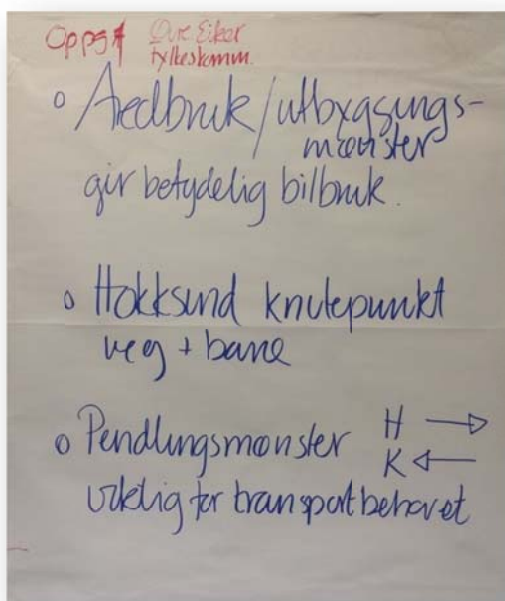 Oppg 1 Øvre Eiker
fylkeskomm.
o Arealbruk/utbyggings-
mønster
gir betydelig bilbruk.
o Hokksund knutepunkt
veg + bane
o Pendlingsmønster H →
K ←
viktig for transportbehovet